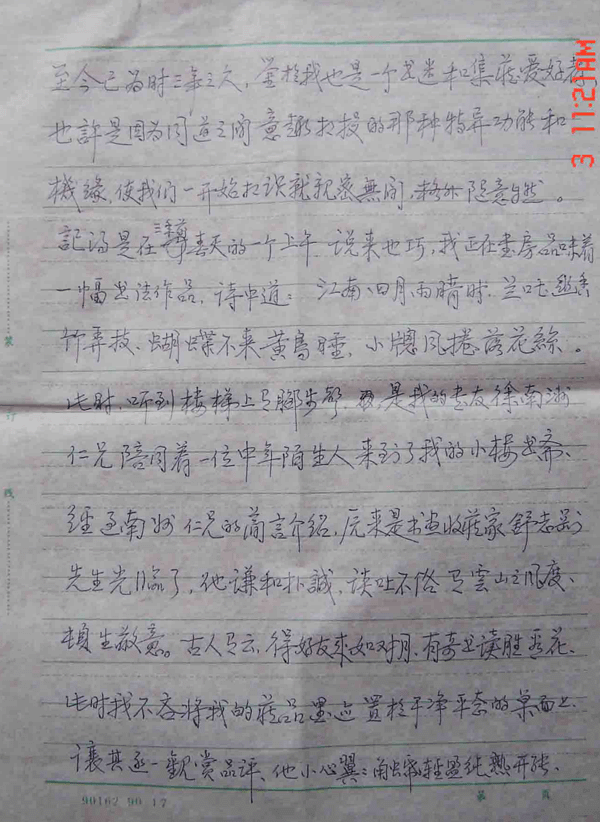 至今已为时三年之久,鉴於我也是一个书迷和集藏爱好者
也許是因为同道之间意趣相投的那种特异功能和
機缘,使我们一开始相识就親密無间,格外随意自然。
記得是在三年前春天的一个上午,说来也巧,我正在書房品味着
一幅书法作品,诗中道:江南四月雨晴时,兰吐幽香
竹弄枝,蝴蝶不来黄鸟睡,小窗风捲落花丝。
此时,听到楼梯上有脚步聲,是我的书友徐南洲
仁兄陪同着一位中年陌生人来到了我的小楼书斋、
经过南洲仁兄的简言介绍,原来是书画收藏家舒志
先生光临了,他谦和朴誠,谈吐不俗有雲山之风度、
頓生敬意。古人有云,得好友来如对月,有奇书读胜看花、
此时我不吝将我的藏品墨迹置於干净平态的桌面上、
讓其逐一觀赏品评、他小心翼:轻盈纯熟开张、
3 11:2 AM
装
订
线
90162 90 17
第 頁